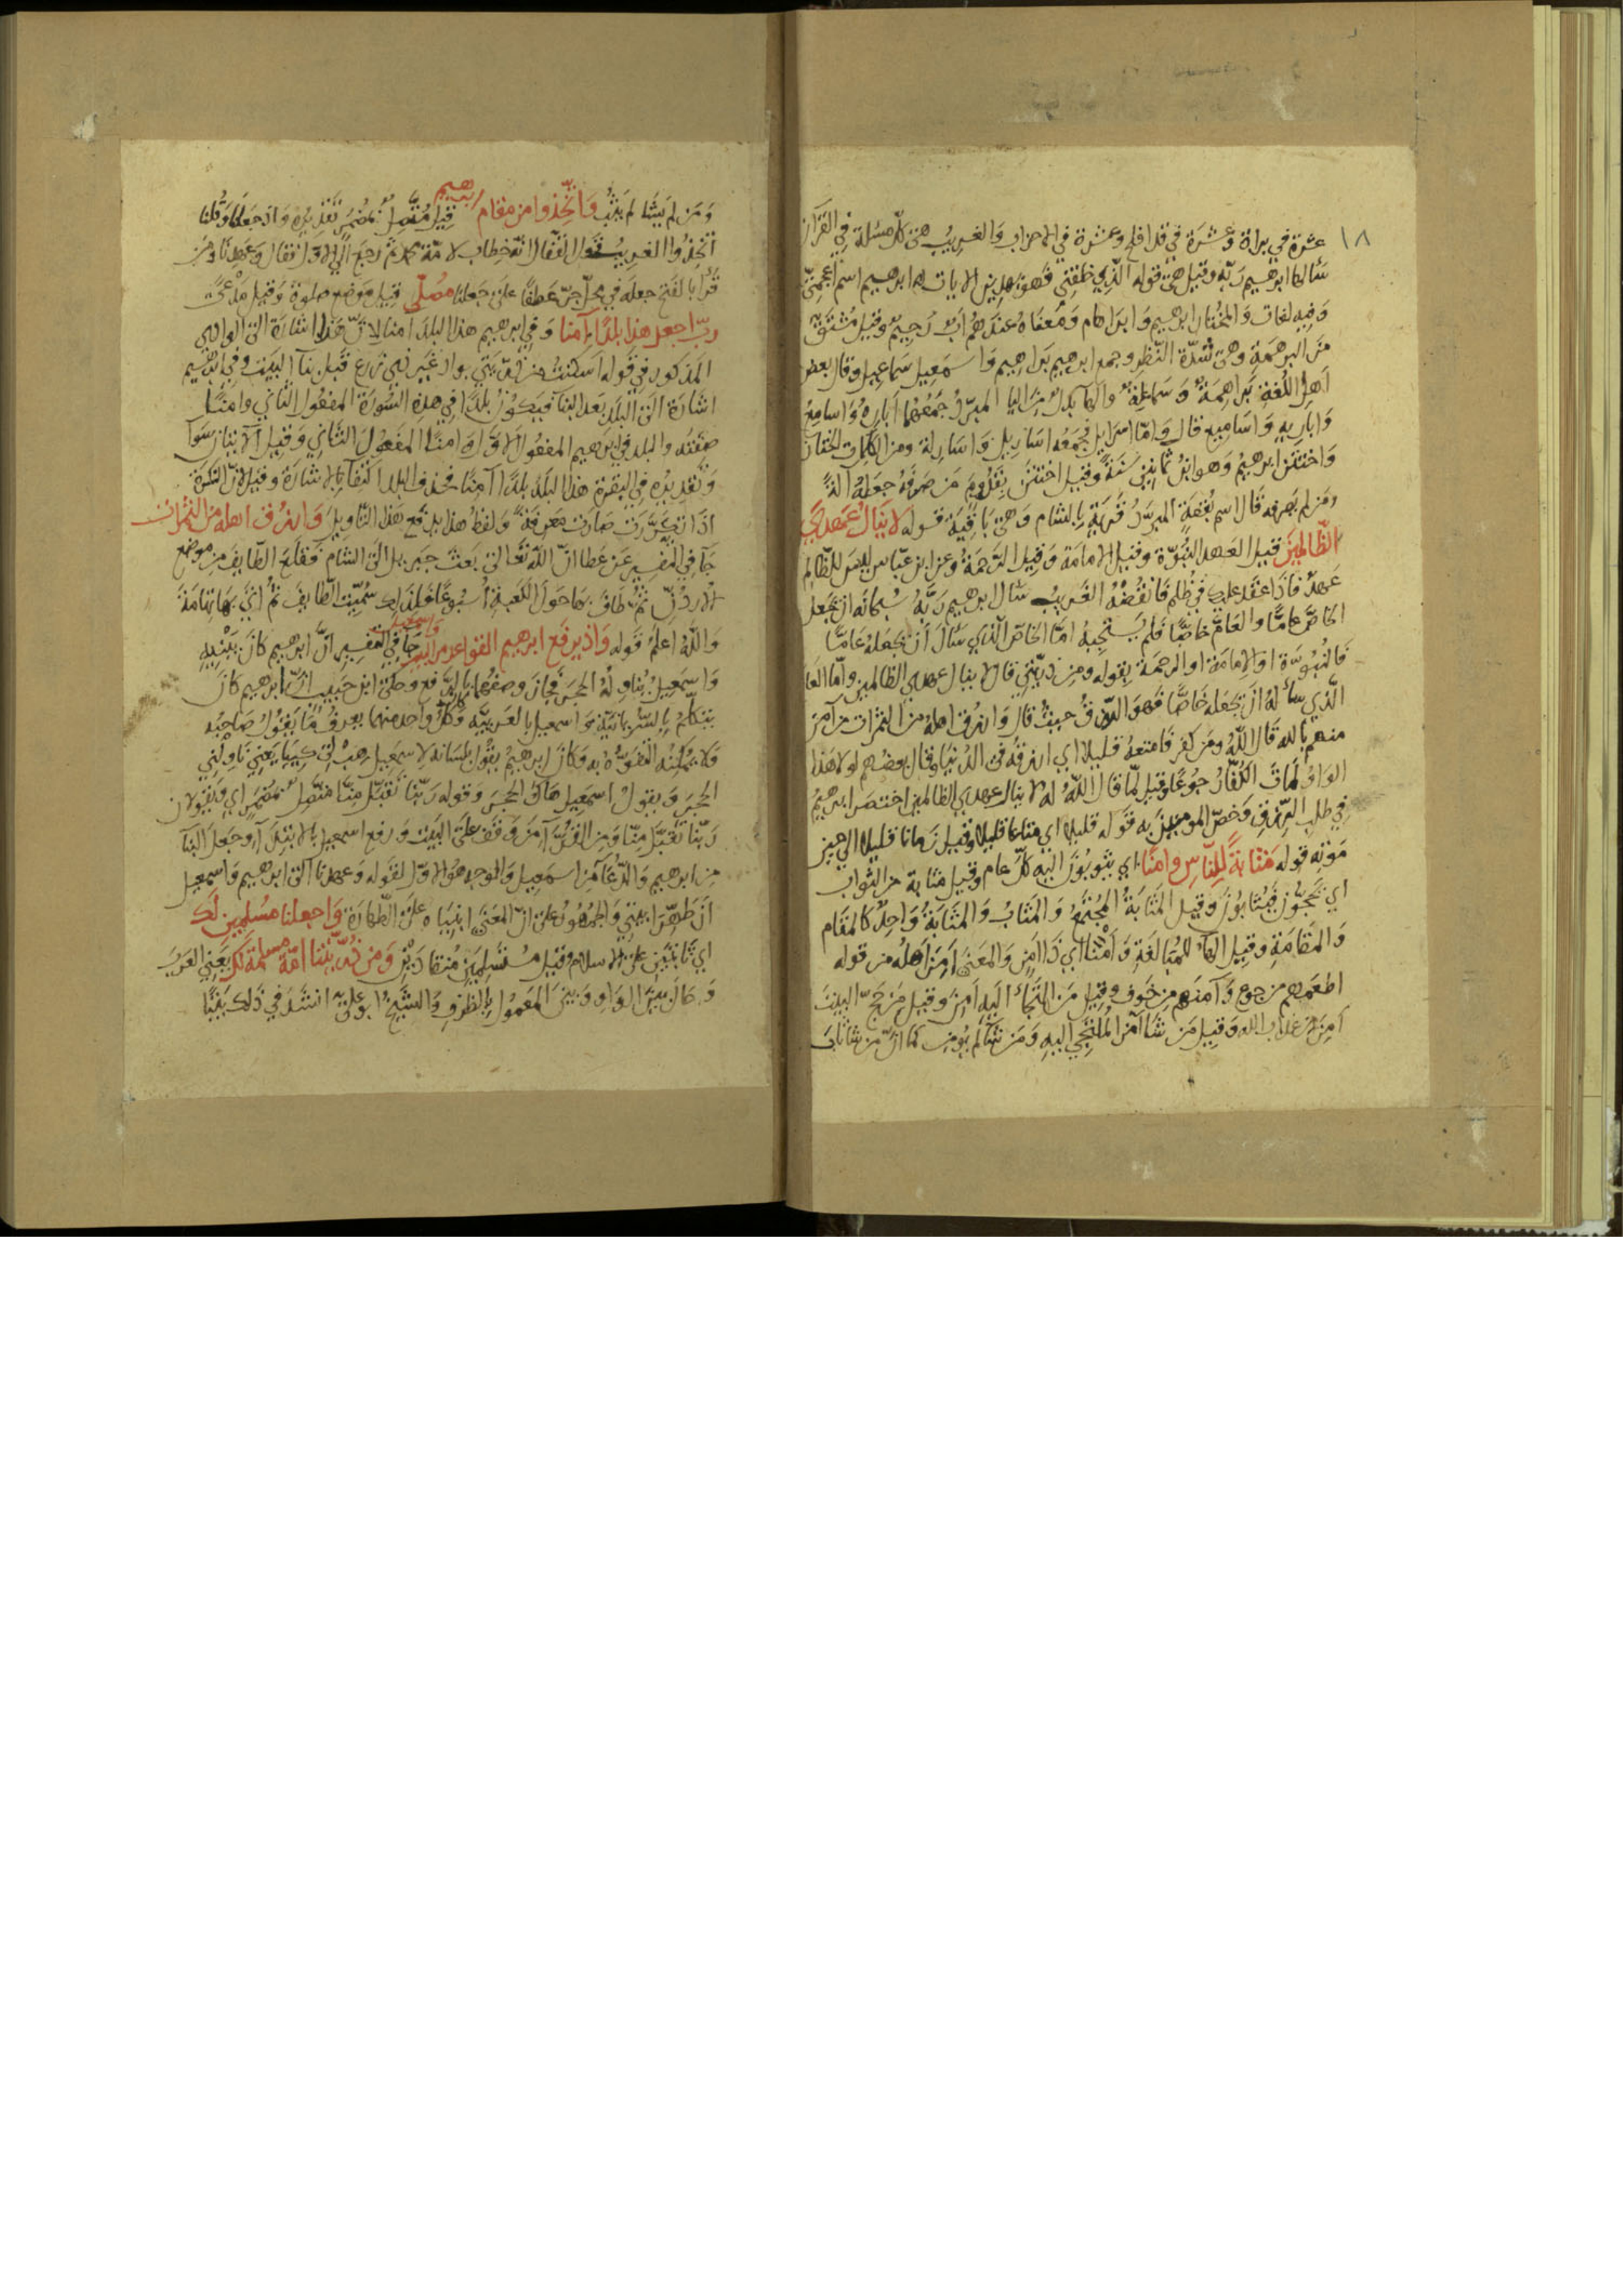 ١٨
عشرة في براة وعشرة في قد افلح وعشرة في الاحزاب والغريب هي كل مسئلة في القرآن
سألها ابرهيم ربه وقيل هي قوله الذي خلقني فهو يهدين الايات ابرهيم اسم اعجمي
وفيه لغات والمختار ابرهيم وابراهام ومعناه عندهم اب رحيم وقيل مشتق
من البرهمة وهي شدة النظر وجمع ابرهيم براهيم واسمعيل سماعيل وقال بعض
اهل اللغة براهمة وسماعلة والها بدل من اليا المبرد جمعهما اباره واسامع
واباريه واساميع قال واما اسرايل فجمعه اساريل واسارلة ومن الكلمات الختان
واختتن ابرهيم وهو ابن ثمانين سنة وقيل اختتن بقدوم من صرفه جعله آلة
ومن لم يصرفه قال اسم بقعة المبرد قرية بالشام وهي باقية قوله لا ينال عهدي
الظالمين قيل العهد النبوة وقيل الامامة وقيل الرحمة وعن ابن عباس ليس للظالم
عهد فاذا عقد عليك في ظلم فانقضه الغريب سأل ابرهيم ربه سبحانه ان يجعل
الخاص عاما والعام خاصا فلم يستجبه اما الخاص الذي سأل ان يجعله عاما
فالنبوة او الامامة او الرحمة بقوله ومن ذريتي قال لا ينال عهدي الظالمين واما العا
الذي سأله ان يجعله خاصا فهو الرزق حيث قال وارزق اهله من الثمرات من آمن
منهم بالله قال الله ومن كفر فامتعه قليلا اي ارزقه في الدنيا وقال بعضهم لولا هذا
الواو لمات الكفار جوعا وقيل لما قال الله له لا ينال عهدي الظالمين اختصر ابرهيم
في طلب الرزق وخص المومنين به قوله قليلا اي متاعا قليلا وقيل زمانا قليلا الى حين
موته قوله مثابة للناس وامنا اي يثوبون اليه كل عام وقيل مثابة من الثواب
اي يحجون فيثابون وقيل المثابة المجتمع والمثاب والمثابة واحد كالمقام
والمقامة وقيل الهاء للمبالغة وامنا اي ذا امن والمعنى امن اهله من قوله
اطعمهم من جوع وآمنهم من خوف وقيل من التجاء اليه امن وقيل من حج البيت
امن من عذاب الله وقيل من شا آمن الملتجي اليه ومن شا لم يومن كما ان من شا ثاب
ومن لم يشا لم يثب واتخذوا من مقام ابرهيم قيل متصل بمضمر تقديره واذ جعلنا وقلنا
اتخذوا الغريب قول القفال انه خطاب لامة محمد ثم رجع الى الاول فقال وعهدنا ومن
قرا بالفتح جعله في محل جر عطفا على جعلنا مصلى قيل موضع صلوة وقيل مدعى
رب اجعل هذا بلدا آمنا وفي ابرهيم هذا البلد امنا لان هذا اشارة الى الوادي
المذكور في قوله اسكنت من ذريتي بواد غير ذي زرع قبل بنآ البيت وفي ابرهيم
اشارة الى البلد بعد البنا فيكون بلدا في هذه السورة المفعول الثاني وامنا
صفته والبلد في ابرهيم المفعول الاول وامنا المفعول الثاني وقيل الايتان سوآ
وتقديره في البقرة هذا البلد بلدا آمنا فحذف البلد اكتفا بالاشارة وقيل لان النكرة
اذا تكررت صارت معرفة ولفظ هذا يدفع هذا التاويل وارزق اهله من الثمرات
جآ في التفسير عن عطا ان الله تعالى بعث جبريل الى الشام فقلع الطايف من موضع
الاردن ثم طاف بها حول الكعبة اسبوعا فلذلك سميت الطايف ثم انزلها تهامة
والله اعلم قوله واذ يرفع ابرهيم القواعد من البيت واسمعيل جآ في التفسير ان ابرهيم كان يبنيه
واسمعيل يناوله الحجر فجاز وصفهما بالرفع وحكى ابن حبيب ان ابرهيم كان
يتكلم بالسريانية واسمعيل بالعربية وكل واحد منهما يعرف ما يقول صاحبه
ولا يمكنه التفوه به وكان ابرهيم يقول بلسانه لاسمعيل هب لي كيبا يعني ناولني
الحجر ويقول اسمعيل هاك الحجر وقوله ربنا تقبل منا متصل بمضمر اي ويقولان
ربنا تقبل منا ومن القرآ من وقف على البيت ورفع اسمعيل بالابتدآ وجعل البنآ
من ابرهيم والدعآ من اسمعيل والوجه هو الاول لقوله وعهدنا الى ابرهيم واسمعيل
ان طهرا بيتي والجمهور على ان المعنى ابنياه على الطهارة واجعلنا مسلمين لك
اي ثابتين على الاسلام وقيل مستسلمين منقادين ومن ذريتنا امة مسلمة لك يعني العرب
وحال بين الواو وبين المعمول بالظرف والشيخ ابو علي انشد في ذلك بيتا